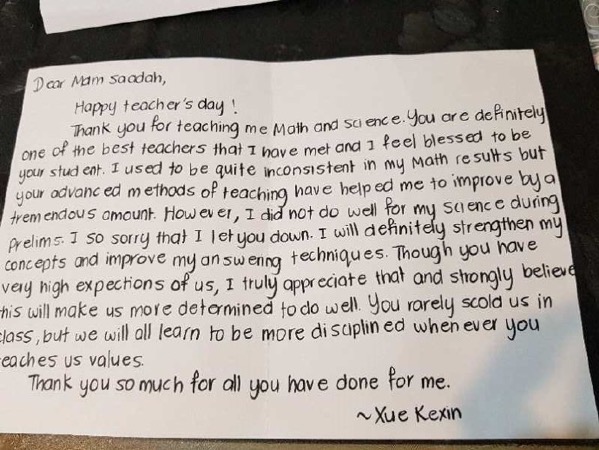 Dear Mam Saadah,
Happy teacher's day!
Thank you for teaching me Math and science. You are definitely
one of the best teachers that I have met and I feel blessed to be
your student. I used to be quite inconsistent in my Math results but
your advanced methods of teaching have helped me to improve by a
tremendous amount. However, I did not do well for my Science during
Prelims. I so sorry that I let you down. I will definitely strengthen my
concepts and improve my answering techniques. Though you have
very high expections of us, I truly appreciate that and strongly believe
his will make us more determined to do well. You rarely scold us in
lass, but we will all learn to be more disciplined when ever you
eaches us values.
Thank you so much for all you have done for me.
~Xue Kexin